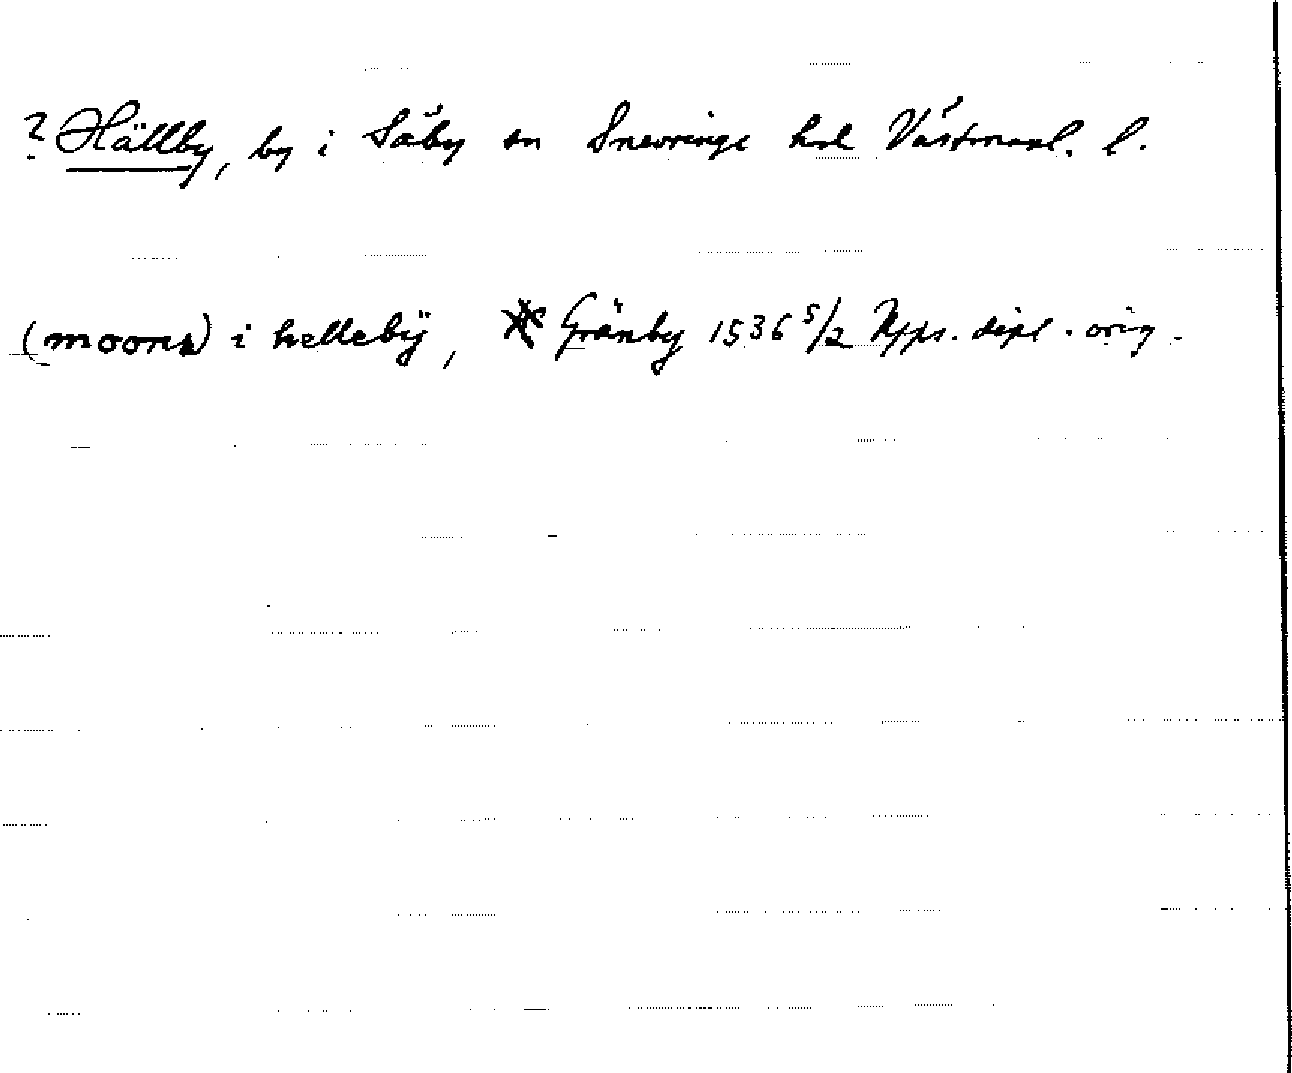 ? Hällby, by i Säby sn Snevringe hd Västmanl. l.
(moons) i hellebÿ, Gränby 1536 5/2 Upps. dipl. orig.